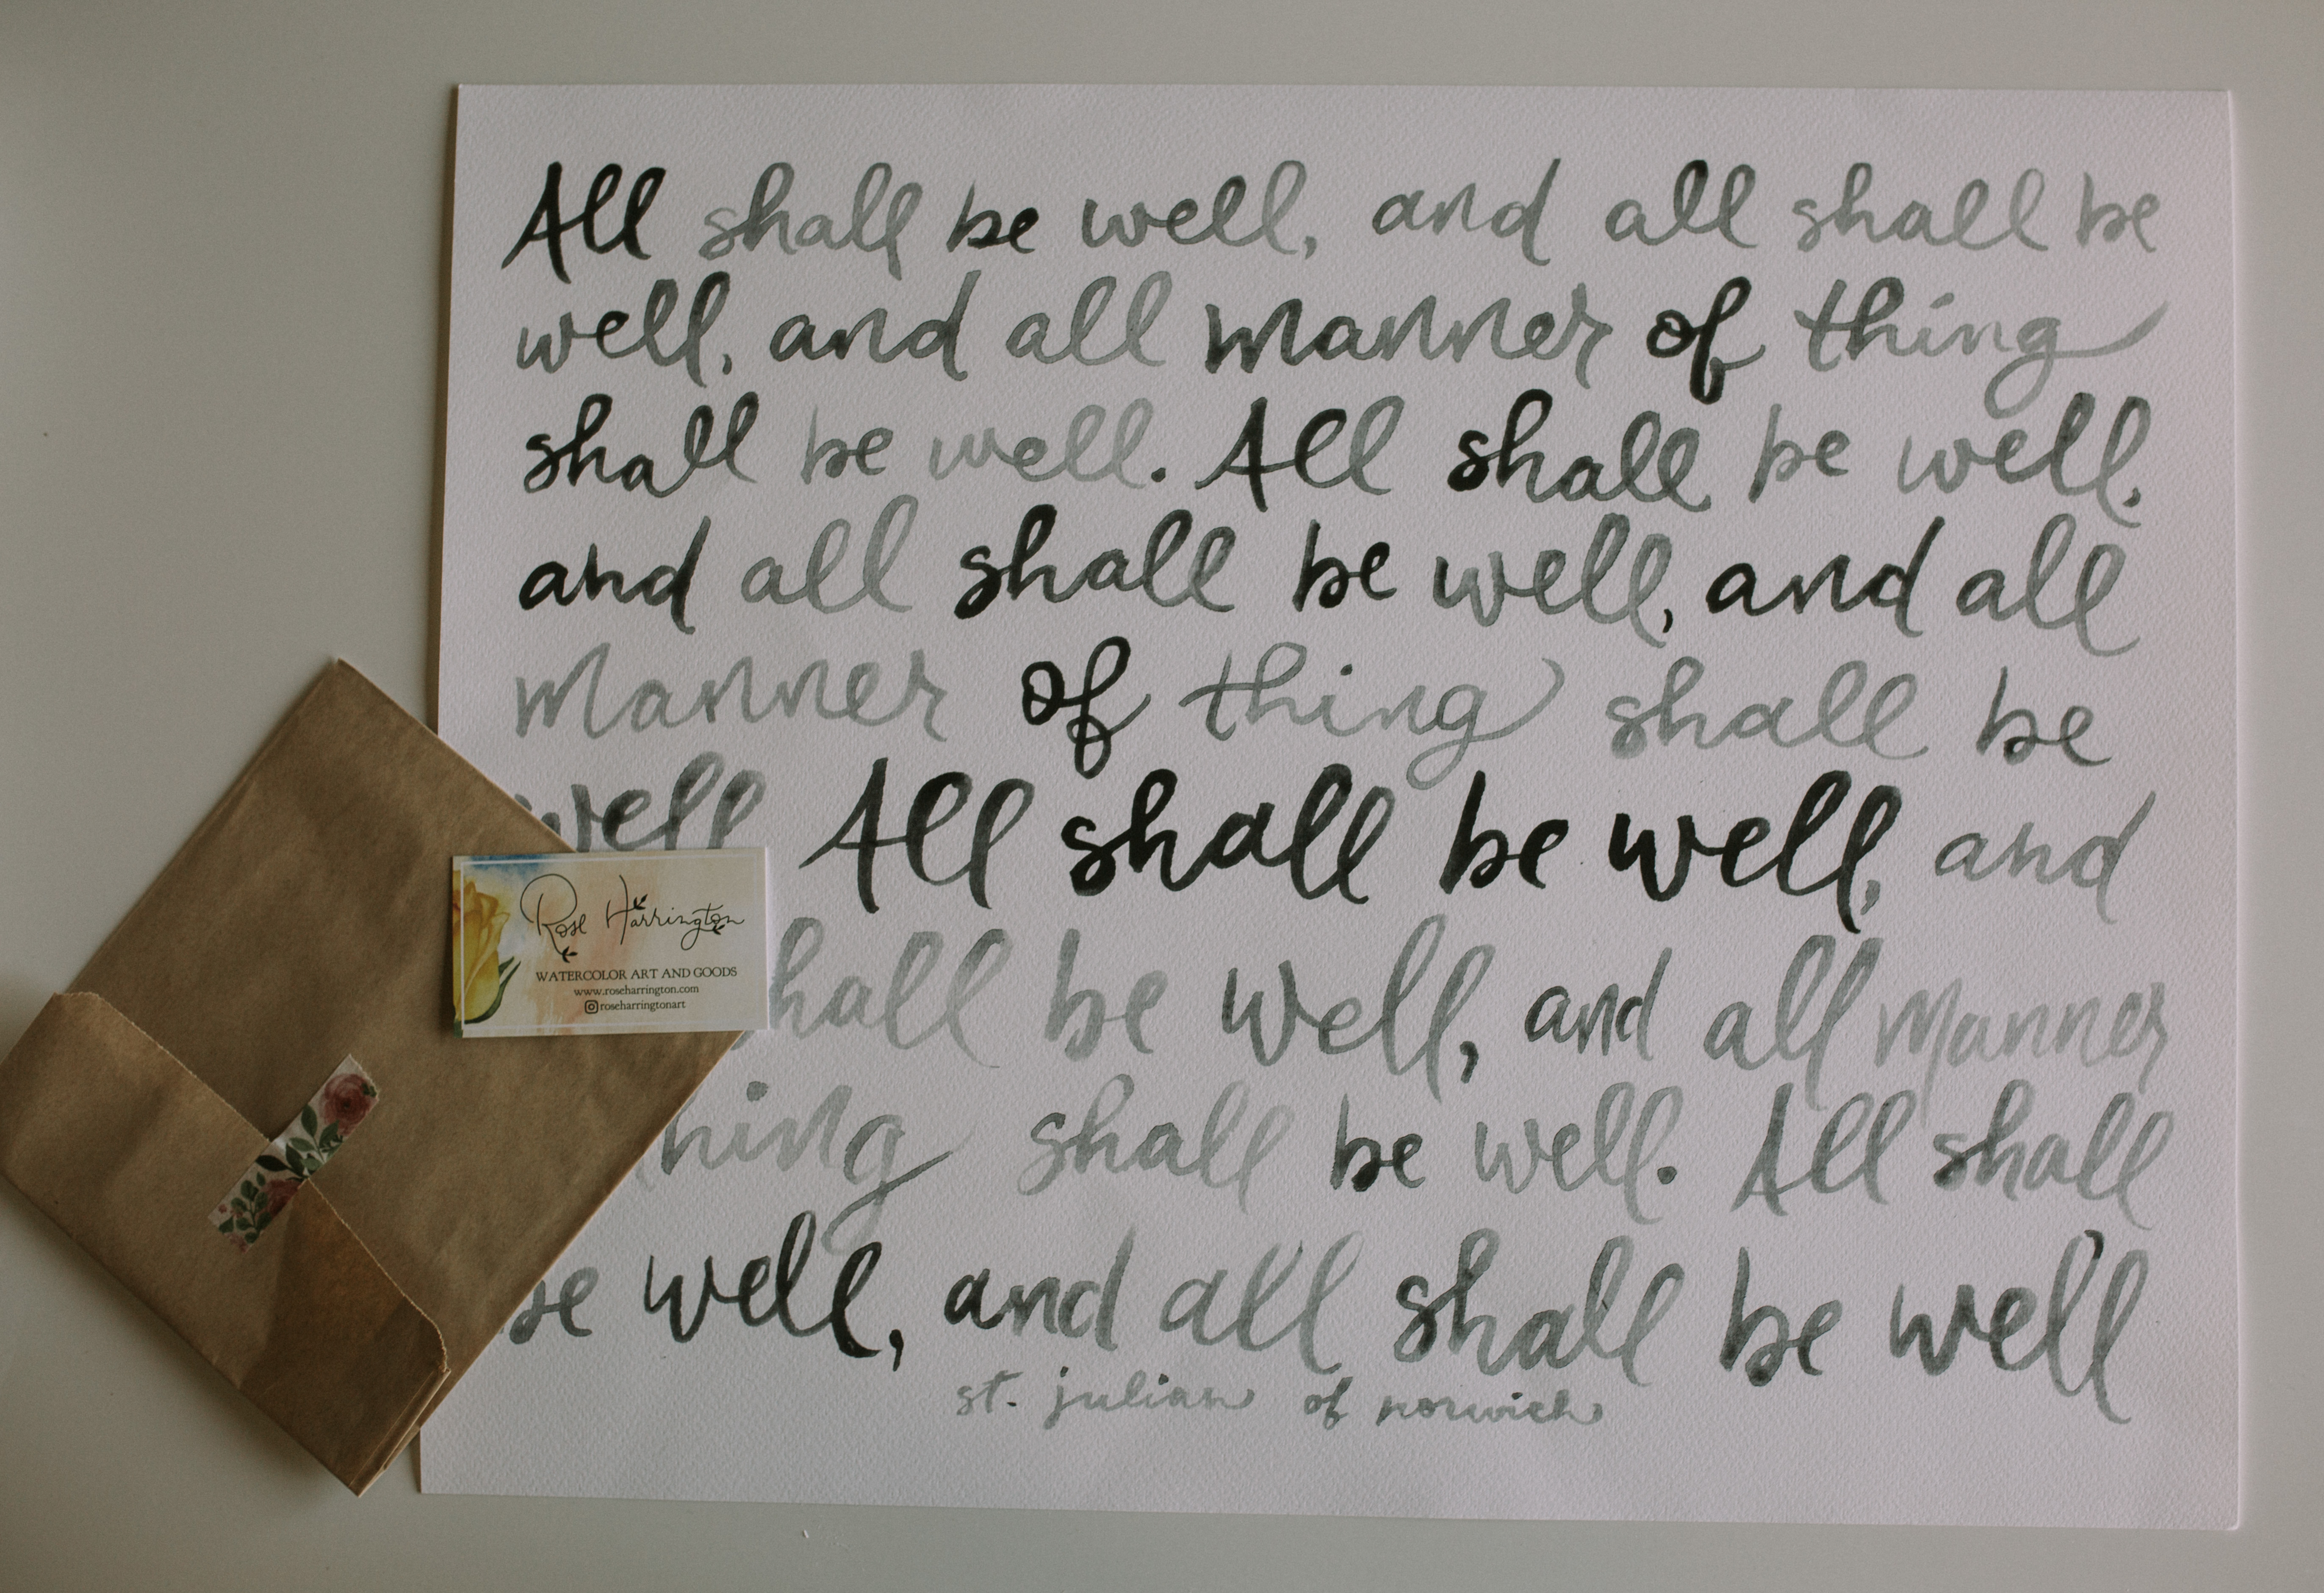 All shall be well, and all shall be
well, and all manner of thing
shall be well. All shall be well,
and all shall be well, and all
manner of thing shall be
well All shall be well, and
be well, and all manner
shall be well. All shall
be well, and all shall be well
st. julian of norwich
Rose Harrington
WATERCOLOR ART AND GOODS
www.roseharrington.com
roseharringtonart